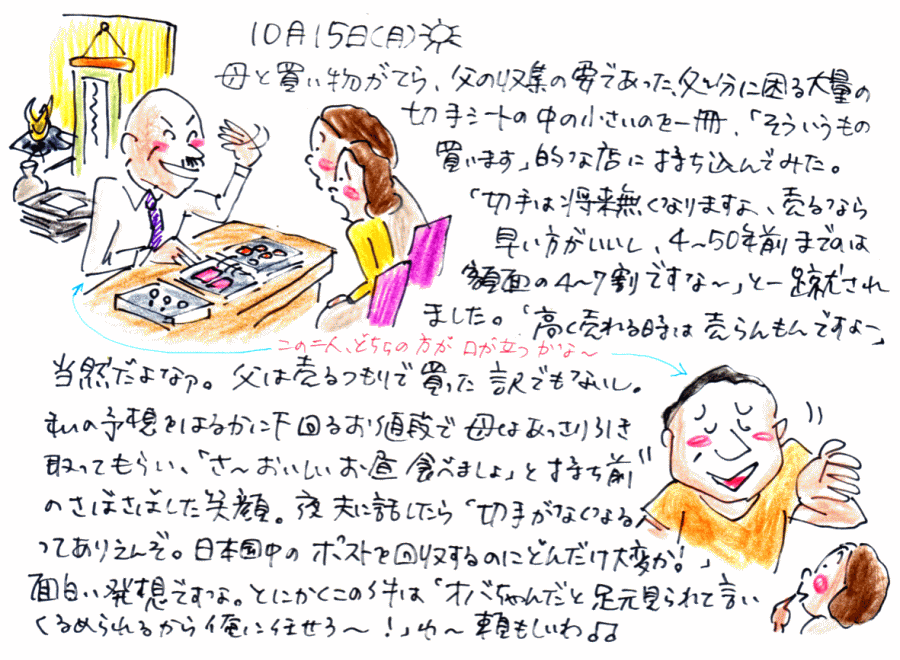 10月15日(月)
母と買い物がてら、父の収集の要であった、処分に困る大量の
切手シートの中の小さいのを一冊、「そういうもの
買います」的な店に持ち込んでみた。
「切手は将来無くなりますよ、売るなら
早い方がいいし、4〜50年前までのは
額面の4〜7割ですな〜」と一蹴され
ました。「高く売れる時は売らんもんですよ〜」
この二人、どちらの方が口が立つかな〜
当然だよなァ。父は売るつもりで買った訳でもないし。
私の予想をはるかに下回るお値段で母はあっさり引き
取ってもらい、「さ〜おいしいお昼食べましょ」と持ち前
のさばさばした笑顔。夜夫に話したら「切手がなくなる
ってありえんぞ。日本国中のポストを回収するのにどんだけ大変か!」
面白い発想ですな。とにかくこの件は「オバちゃんだと足元見られて言い
くるめられるから俺に任せろ〜!」わ〜頼もしいわ♫